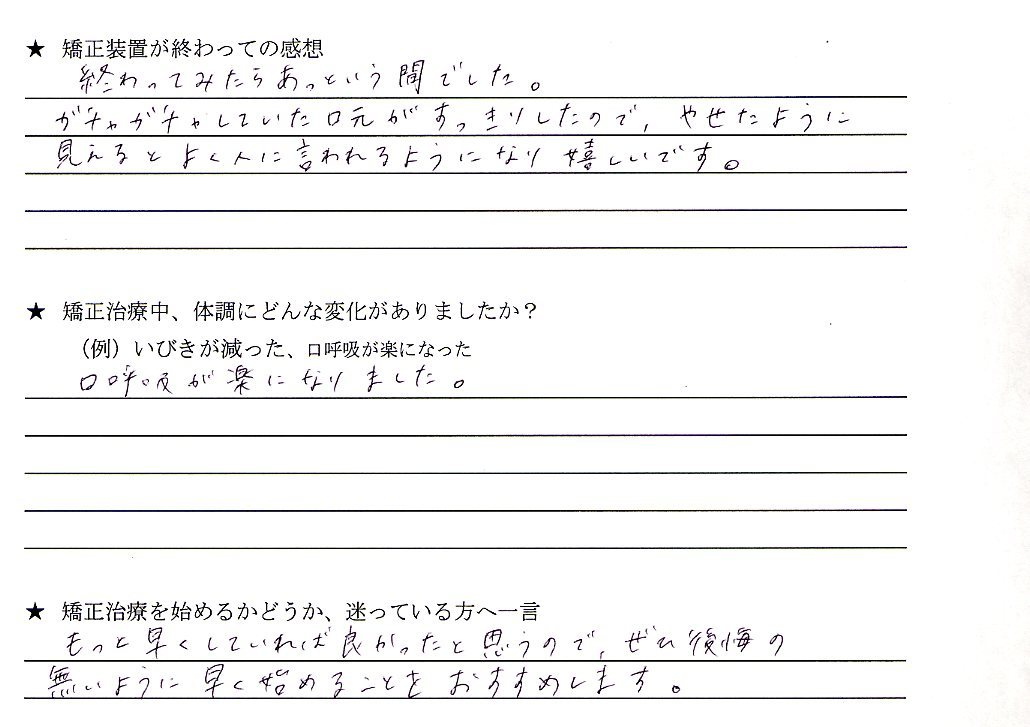 ★ 矯正装置が終わっての感想
終わってみたらあっという間でした。
ガチャガチャしていた口元がすっきりしたので、やせたように
見えるとよく人に言われるようになり嬉しいです。
★ 矯正治療中、体調にどんな変化がありましたか？
（例）いびきが減った、口呼吸が楽になった
口呼吸が楽になりました。
★ 矯正治療を始めるかどうか、迷っている方へ一言
もっと早くしていれば良かったと思うので、ぜひ後悔の
無いように早く始めることをおすすめします。